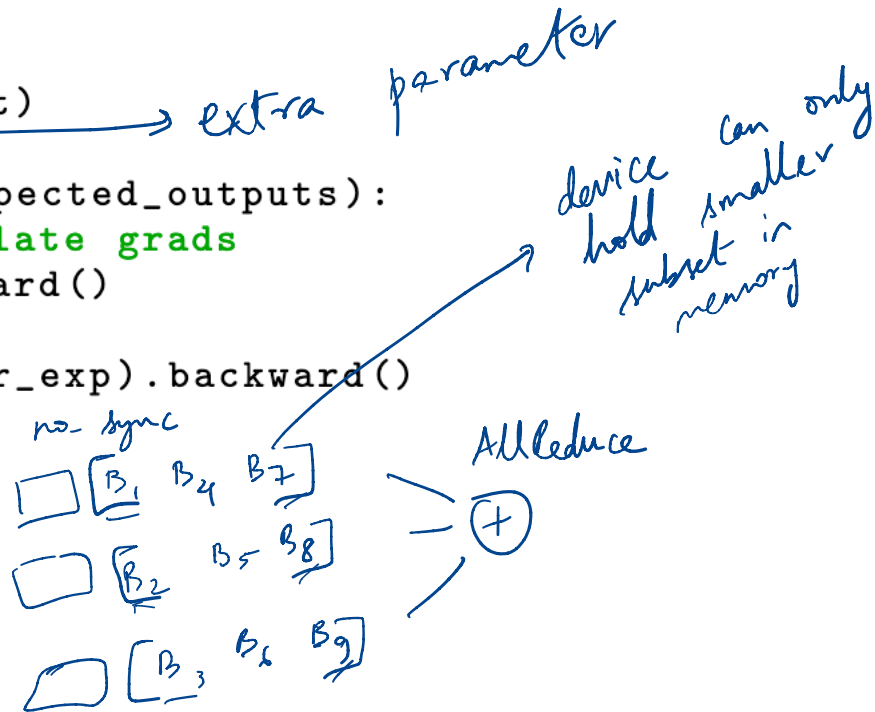 t)
extra parameter
pected_outputs):
late grads
ard()
r_exp).backward()
device can only
hold smaller
subset in
memory
no_sync
AllReduce
[B1 B4 B7]
+
[B2 B5 B8]
[B3 B6 B9]